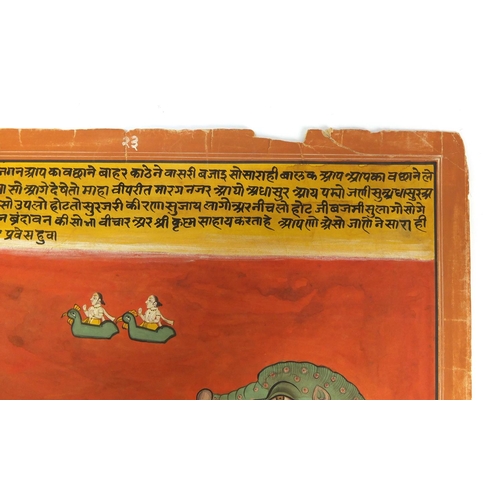 २३
जगन आप का वछाने बाहर काठेने वासरी बजाइ सो सारा ही बालक आप आपका वछाने ले
सो आगे देषे तो माहा वीपरीत मारग नजर आयो अधासुर आय पमो जाणी सु अधासुर अ
सो उपलो होठ तो सुरजरी कीरणा सु जाय लागो अर नीचलो होठ जी बजमी सु लागो सो गे
न ब्रंदावन की सोभा वीचार अर श्री कृष्ण साहाय करता है आपणो अेसो जाणे ने सारा ही
प्रवेस हुवा